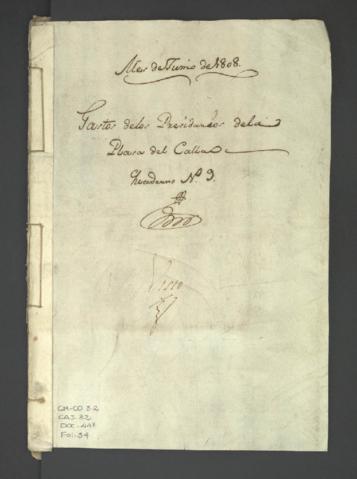 Mes de Junio de 1808.
Gastos delos Presidarios dela
Plasa del Callao
Quaderno Nº 9.
Visto
GM-CO 32
CAJ. 32
DOC. 447
Fol. 34